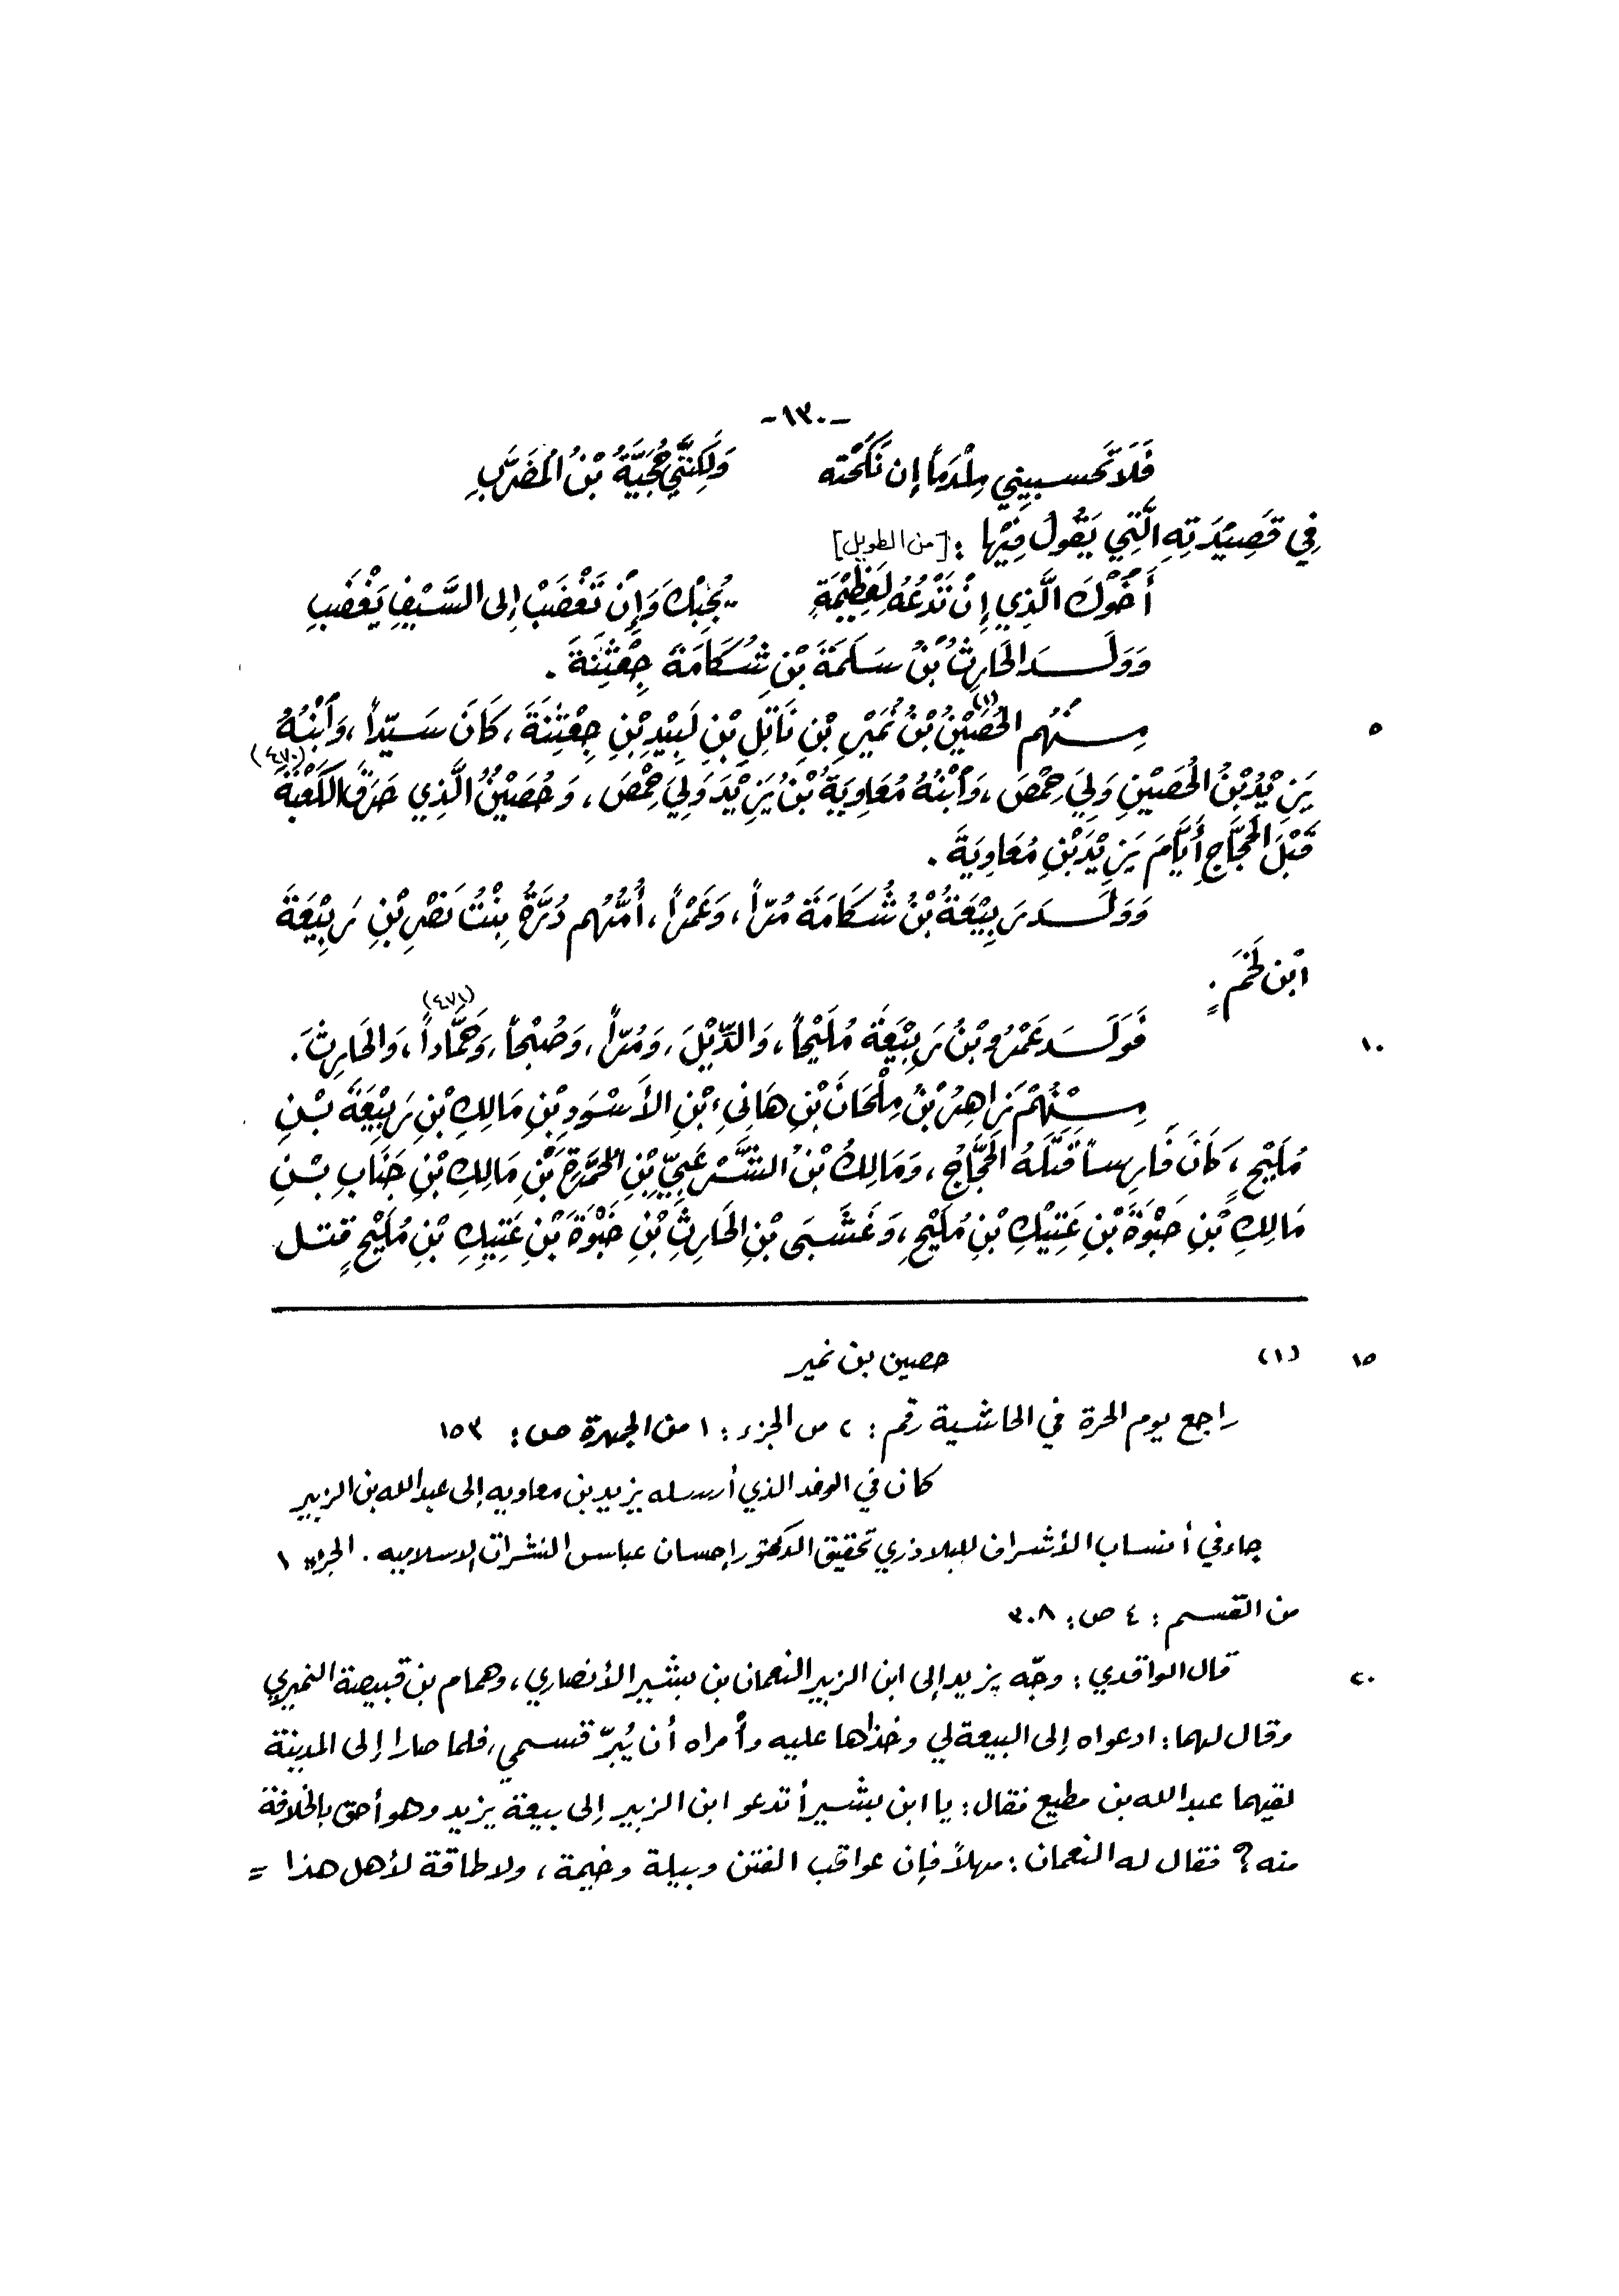 -١٣٠-
فَلَا تَحسبِيني مِلْدَماً إن نَكَحْتَه وَلَكِنَّنِي حُجَيَّةُ بْنُ الْمُضَرَّبِ
فِي قَصِيْدَتِهِ الَّتِي يَقُولُ فِيْهَا : [من الطويل]
أَخُوْكَ الَّذِي إنْ تَدْعُهُ لِعَظِيْمَةٍ يُجِبْكَ وَإنْ تَغْضَبْ إلى السَّيْفِ يَغْضَبِ
وَوَلَـدَ الحَارِثُ بْنُ سَلَمَةَ بْنِ شُكَامَةَ جِعْثِنَةَ .
مِـنْهُم الحُصَيْنُ (١) بْنُ نُمَيْرِ بْنِ نَاتِلِ بْنِ لَبِيْدِ بْنِ جِعْثِنَةَ ، كَانَ سَيِّداً ، وَابْنُهُ ٥
يَزِيْدُ بْنُ الْحُصَيْنِ وَلِيَ حِمْصَ ، وَابْنُهُ مُعَاوِيَةُ بْنُ يَزِيْدَ وَلِيَ حِمْصَ ، وَحُصَيْنُ الَّذِي حَرَقَ الكَعْبَةَ (٤٧٠)
قَبْلَ الحَجَّاجِ أَيَّامَ يَزِيْدَ بْنِ مُعَاوِيَةَ .
وَوَلَـدَ رَبِيْعَةُ بْنُ شُكَامَةَ مُرّاً ، وَعَمْراً ، أُمُّهُم دُرَّةُ بِنْتُ نَصْرِ بْنِ رَبِيْعَةَ
ابْن لَخْمٍ .
فَوَلَـدَ عَمْرُو بْنُ رَبِيْعَةَ مُلَيْحاً ، وَالدِّيْلَ ، وَمُرّاً ، وَصُبْحاً ، وَحَمَّاداً (٤٧١) ، وَالحَارِثَ . ١٠
مِـنْهُمْ زَاهِرُ بْنُ مِلْحَانَ بْنِ هَانِئ بْنِ الأَسْوَدِ بْنِ مَالِكِ بْنِ رَبِيْعَةَ بْـنِ
مُلَيْحٍ ، كَانَ فَارِساً قَتَلَهُ الحَجَّاجُ ، وَمَالِكُ بْنُ الشَّرْعَبِيِّ بْنِ الحُمَّرَةِ بْنِ مَالِكِ بْنِ جَنَابِ بْـنِ
مَالِكِ بْنِ حَبْوَةَ بْنِ عَتِيْكِ بْنِ مُلَيْحٍ ، وَغَشَّبَى بْنِ الحَارِثِ بْنِ حَبْوَةَ بْنِ عَتِيكِ بْنِ مُلَيْحٍ قتـل
(١) حصين بن نمير ١٥
راجع يوم الحرة في الحاشية رقم : ٢ من الجزء : ١ من الجمهرة ص : ١٥٣
كان في الوفد الذي أرسله يزيد بن معاويه إلى عبدالله بن الزبير
جاء في أنساب الأشراف للبلاذري تحقيق الدكتور إحسان عباس النشرات الاسلاميه . الجزء ١
من القسم : ٤ ص : ٣٠٨
قال الواقدي : وجّه يزيد إلى ابن الزبير النعمان بن بشير الأنصاري ، وهمام بن قبيصة النميري ٢٠
وقال لهما : ادعواه إلى البيعة لي وخذاها عليه وأمراه أن يُبرّ قسمي ، فلما صارا إلى المدينة
لقيهما عبدالله بن مطيع فقال : يا ابن بشير أتدعو ابن الزبير إلى بيعة يزيد وهو أحق بالخلافة
منه ؟ فقال له النعمان : مهلاً فإن عواقب الفتن وبيلة وخيمة ، ولا طاقة لأهل هذا =